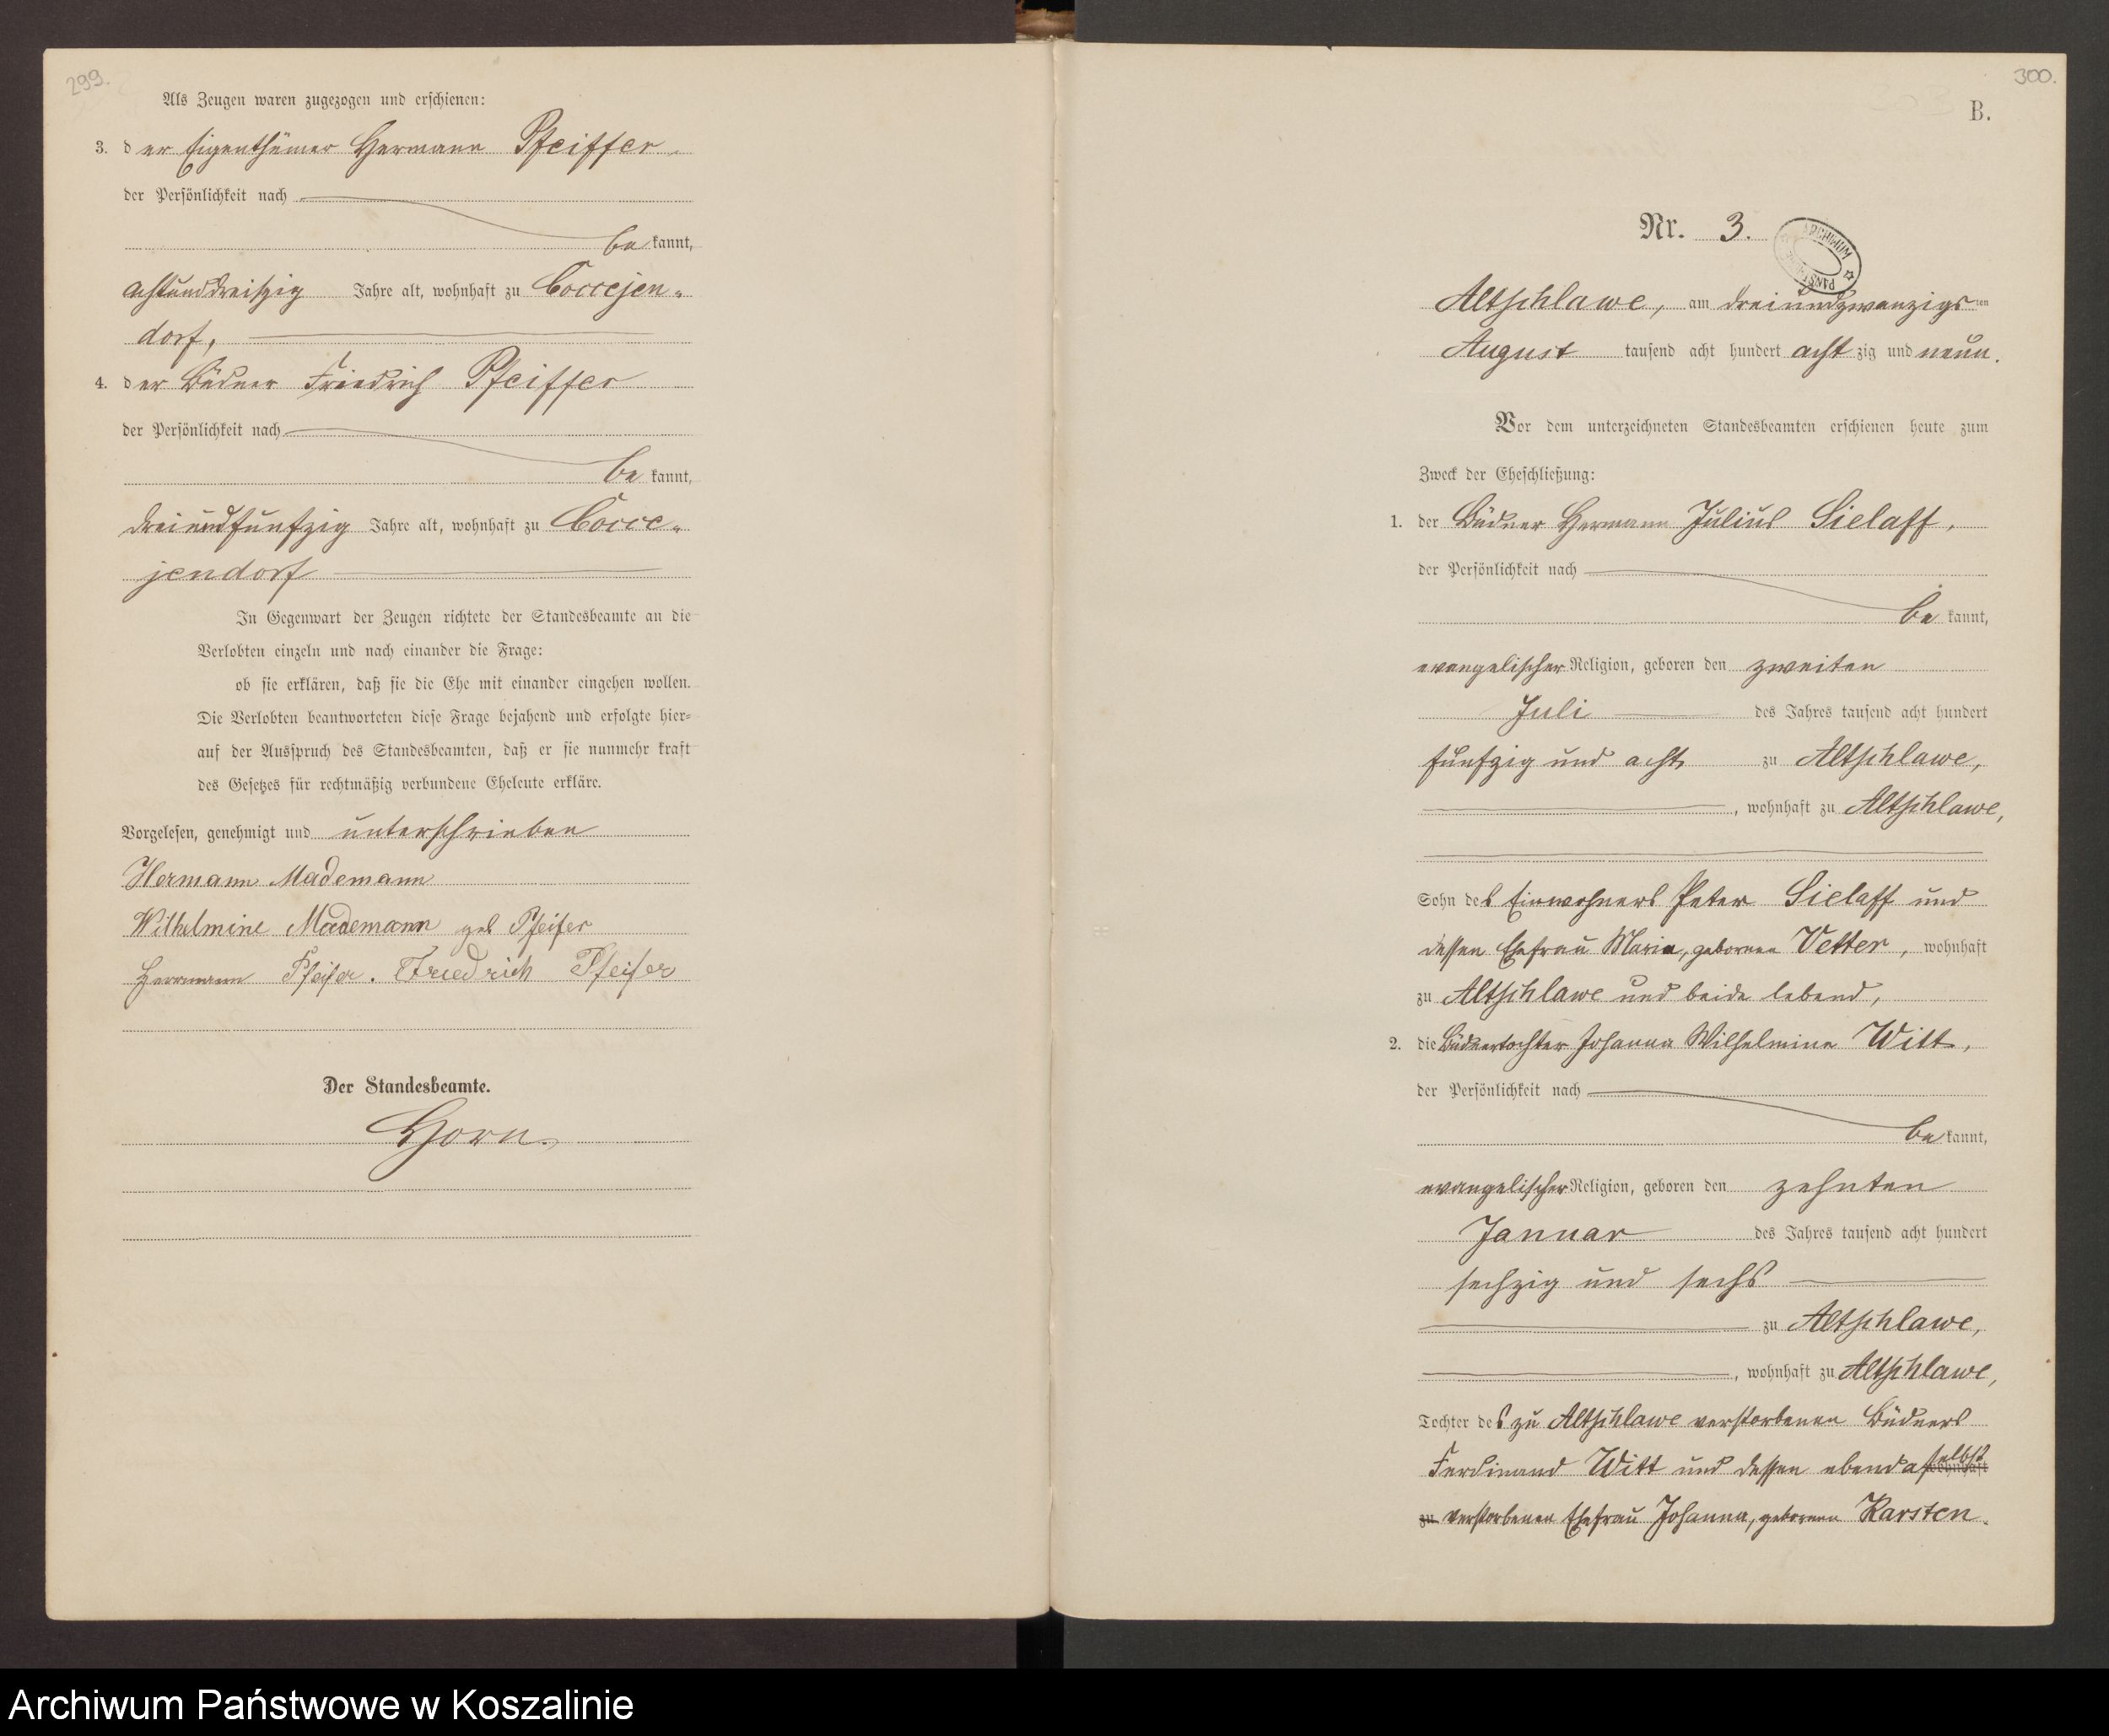 299.
Als Zeugen waren zugezogen und erschienen:
3. der Eigenthümer Hermann Pfeiffer
der Persönlichkeit nach
bekannt,
achtunddreißig Jahre alt, wohnhaft zu Coccejen-
dorf,
4. der Büdner Friedrich Pfeiffer
der Persönlichkeit nach
bekannt,
dreiundfünfzig Jahre alt, wohnhaft zu Cocce-
jendorf
In Gegenwart der Zeugen richtete der Standesbeamte an die
Verlobten einzeln und nach einander die Frage:
ob sie erklären, daß sie die Ehe mit einander eingehen wollen.
Die Verlobten beantworteten diese Frage bejahend und erfolgte hier-
auf der Ausspruch des Standesbeamten, daß er sie nunmehr kraft
des Gesetzes für rechtmäßig verbundene Eheleute erkläre.
Vorgelesen, genehmigt und unterschrieben
Hermann Mademann
Wilhelmine Mademann geb Pfeifer
Herrmann Pfeifer. Friedrich Pfeifer
Der Standesbeamte.
Horn.
300.
B.
Nr. 3.
ARCHIWUM
Altschlawe, am dreiundzwanzigsten
August tausend acht hundert achtzig und neun.
Vor dem unterzeichneten Standesbeamten erschienen heute zum
Zweck der Eheschließung:
1. der Büdner Hermann Julius Sielaff,
der Persönlichkeit nach
bekannt,
evangelischer Religion, geboren den zweiten
Juli des Jahres tausend acht hundert
fünfzig und acht zu Altschlawe,
, wohnhaft zu Altschlawe,
Sohn des Einwohners Peter Sielaff und
dessen Ehefrau Marie, gebornen Vetter, wohnhaft
zu Altschlawe und beide lebend,
2. die Büdnertochter Johanna Wilhelmine Witt,
der Persönlichkeit nach
bekannt,
evangelischer Religion, geboren den zehnten
Januar des Jahres tausend acht hundert
sechzig und sechs
zu Altschlawe,
, wohnhaft zu Altschlawe,
Tochter des zu Altschlawe verstorbenen Büdners
Ferdinand Witt und dessen ebendaselbst wohnhaft
zu verstorbenen Ehefrau Johanna, geborenen Karsten.
Archiwum Państwowe w Koszalinie